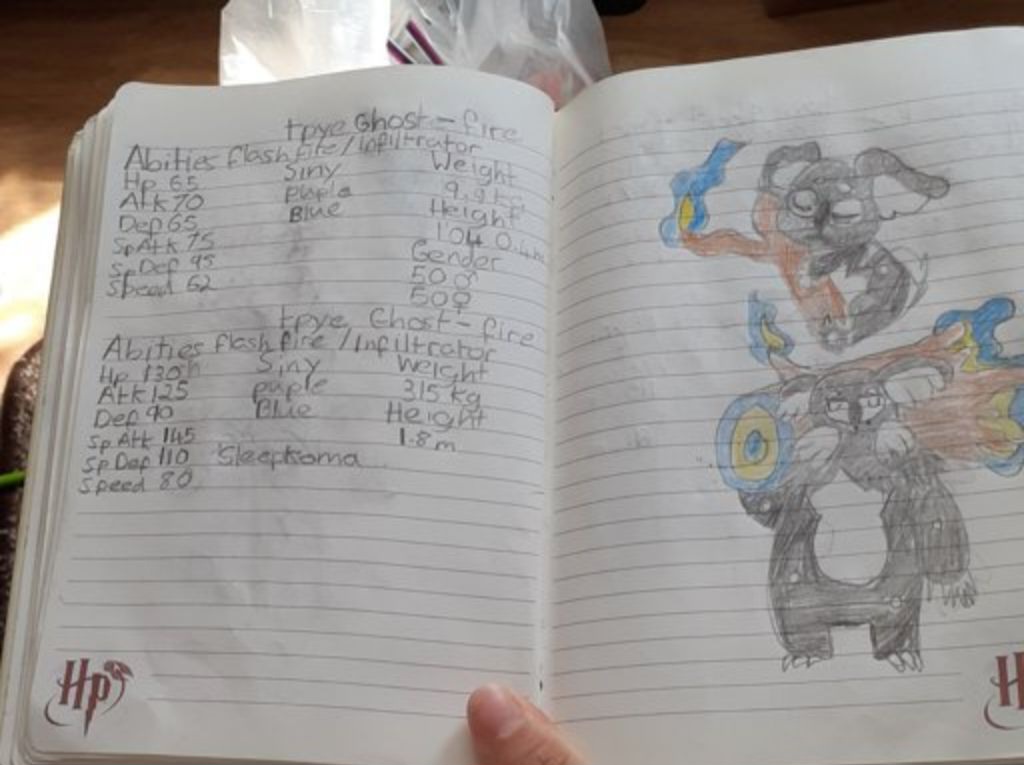 trye Ghost-fire
Abities flash fire/Infiltrator
Hp 65 Siny Weight
Atk 70 puple 9.9 kg
Dep 65 Blue Height
Sp Atk 75 1'04 0.4m
Sp Def 95 Gender
Speed 62 50♂
50♀
trye Ghost-fire
Abities flash fire/Infiltrator
Hp 130 Siny Weight
Atk 125 puple 315 kg
Def 90 Blue Height
Sp Atk 145 1.8m
Sp Dep 110 Sleepksoma
Speed 80
Hp
H